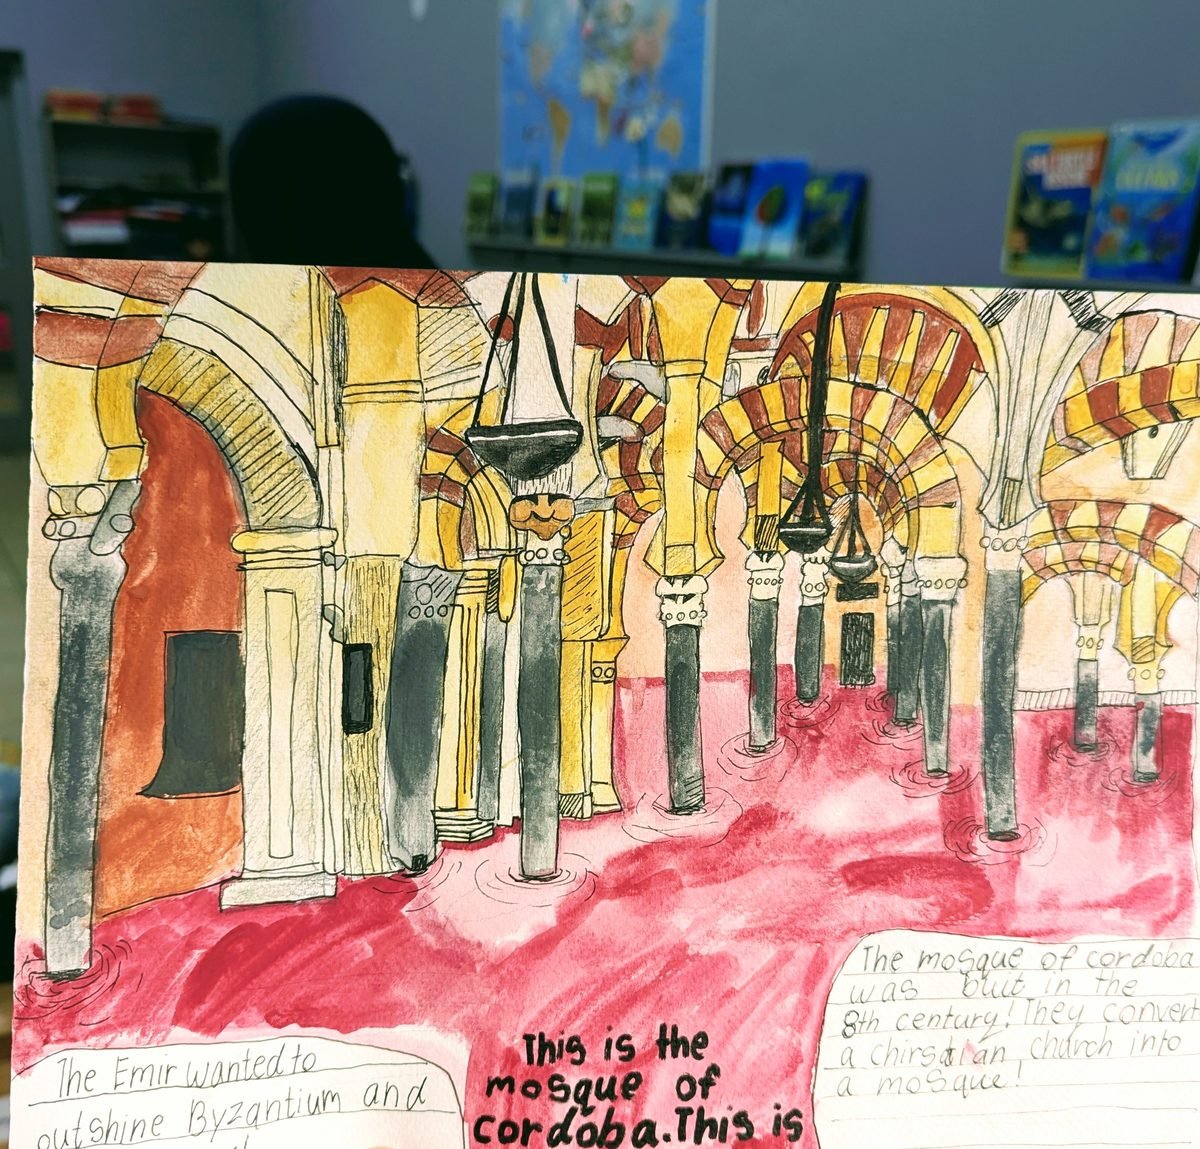 The Emir wanted to
outshine Byzantium and
This is the
mosque of
cordoba. This is
The mosque of cordoba
was built in the
8th century! They convert
a chirstian church into
a mosque!